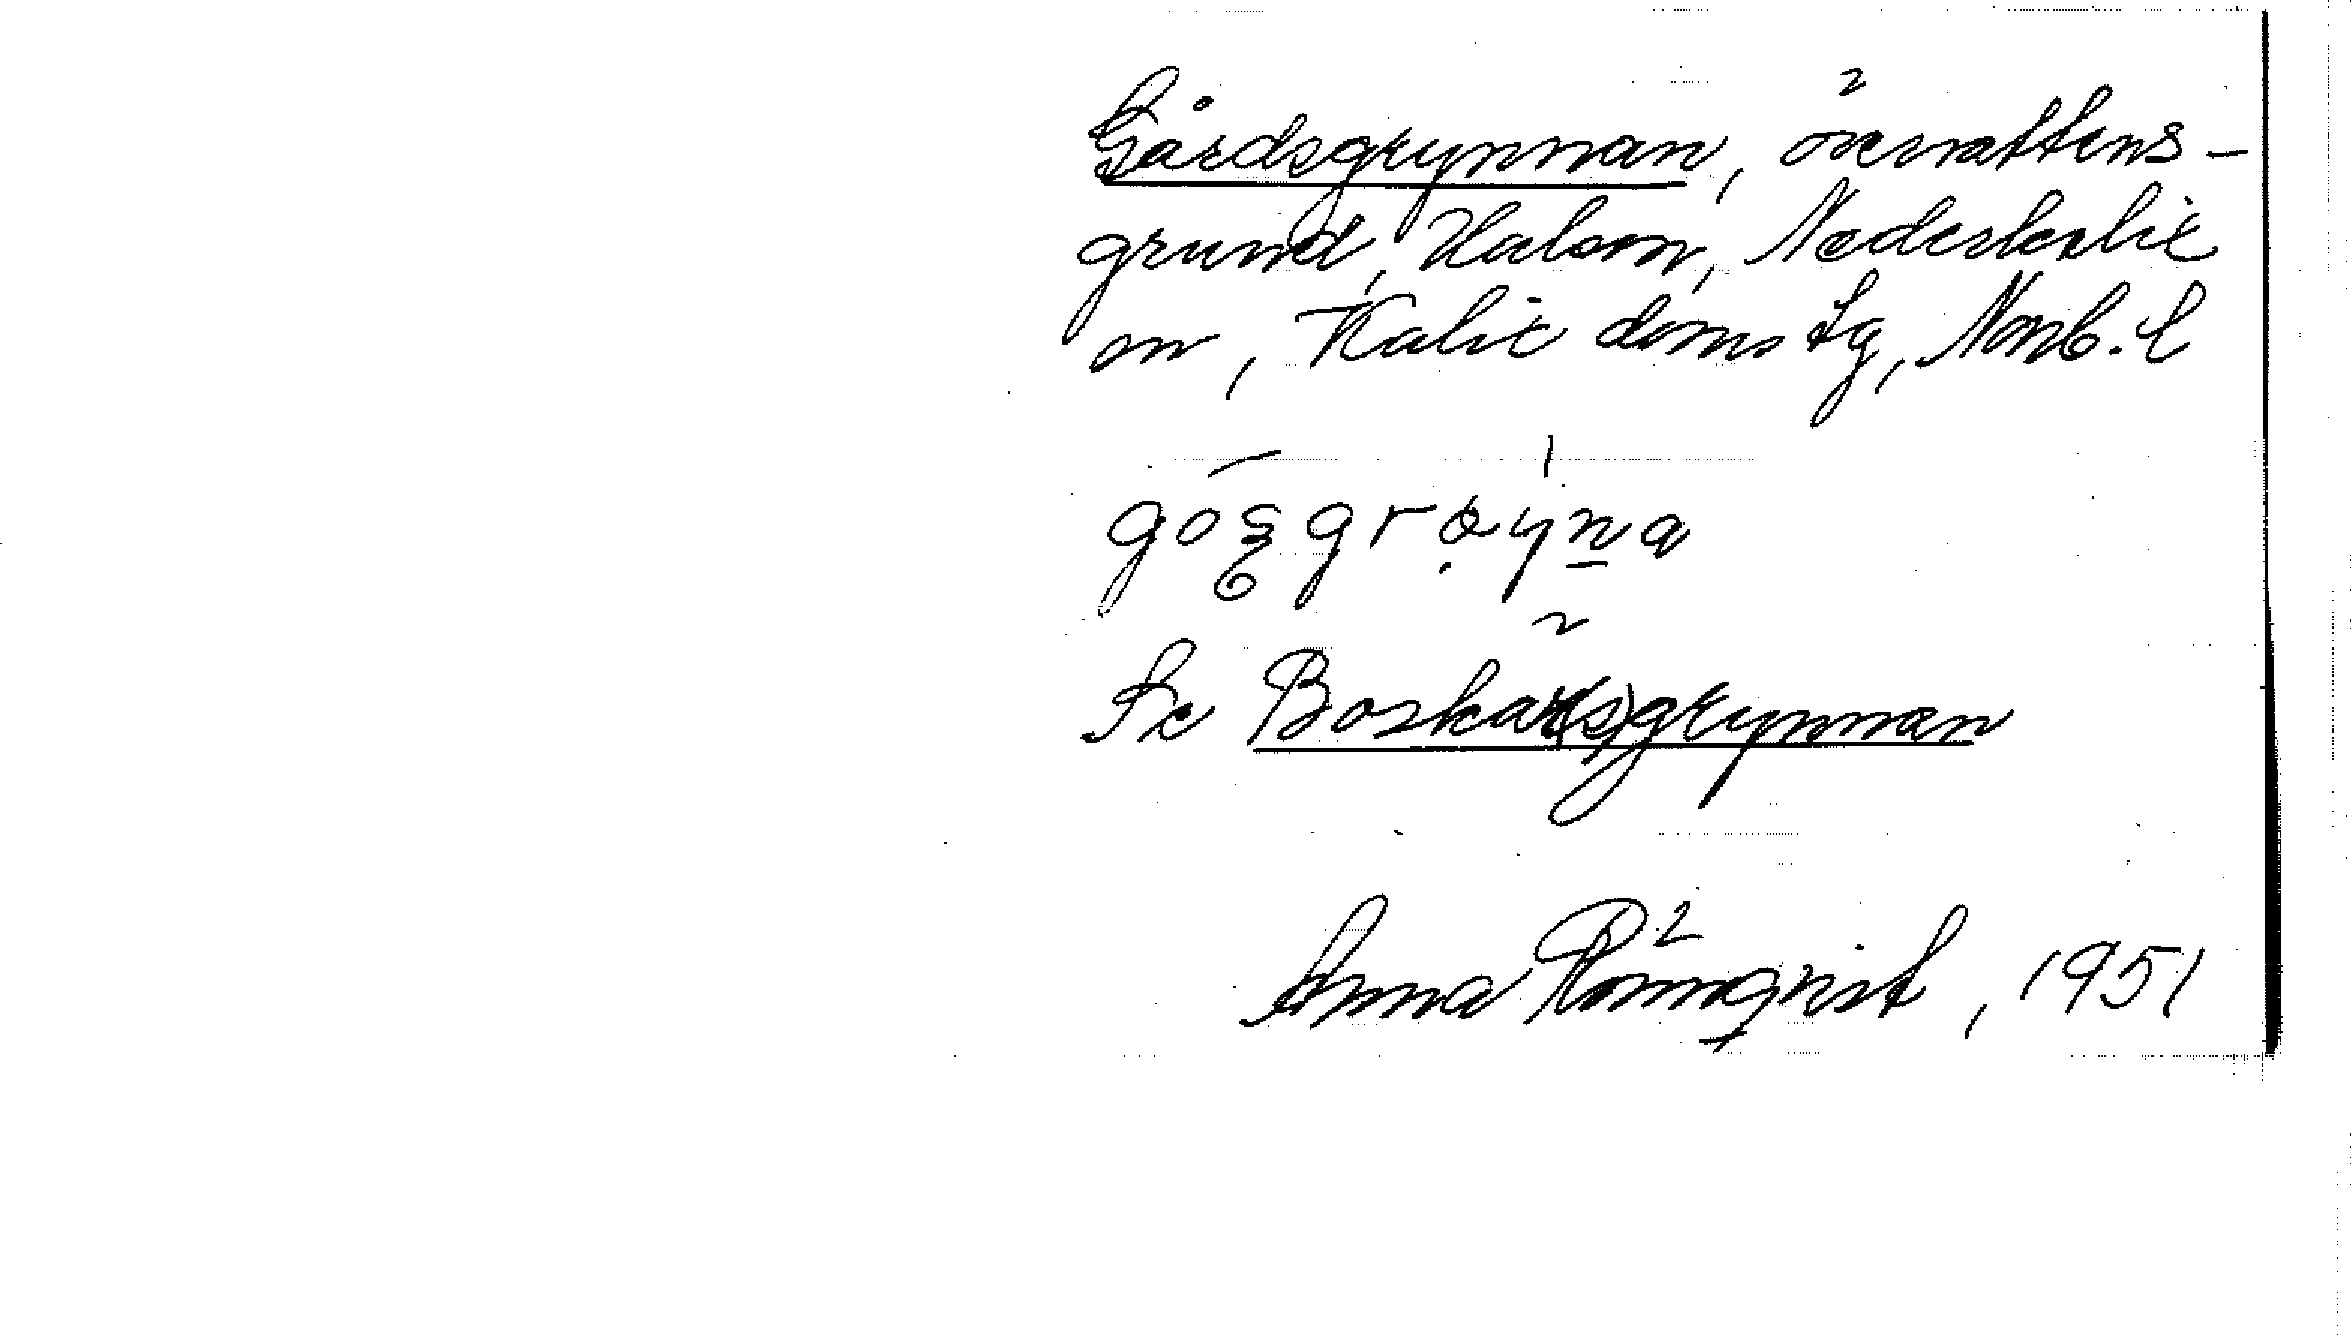 Gårdsgrynnan, övervattens-
grund, Halsön, Nederkalix
sn, Kalix doms tg, Norrb. l
Se Boskär(s)grynnan
Anna Rönnqvist, 1951